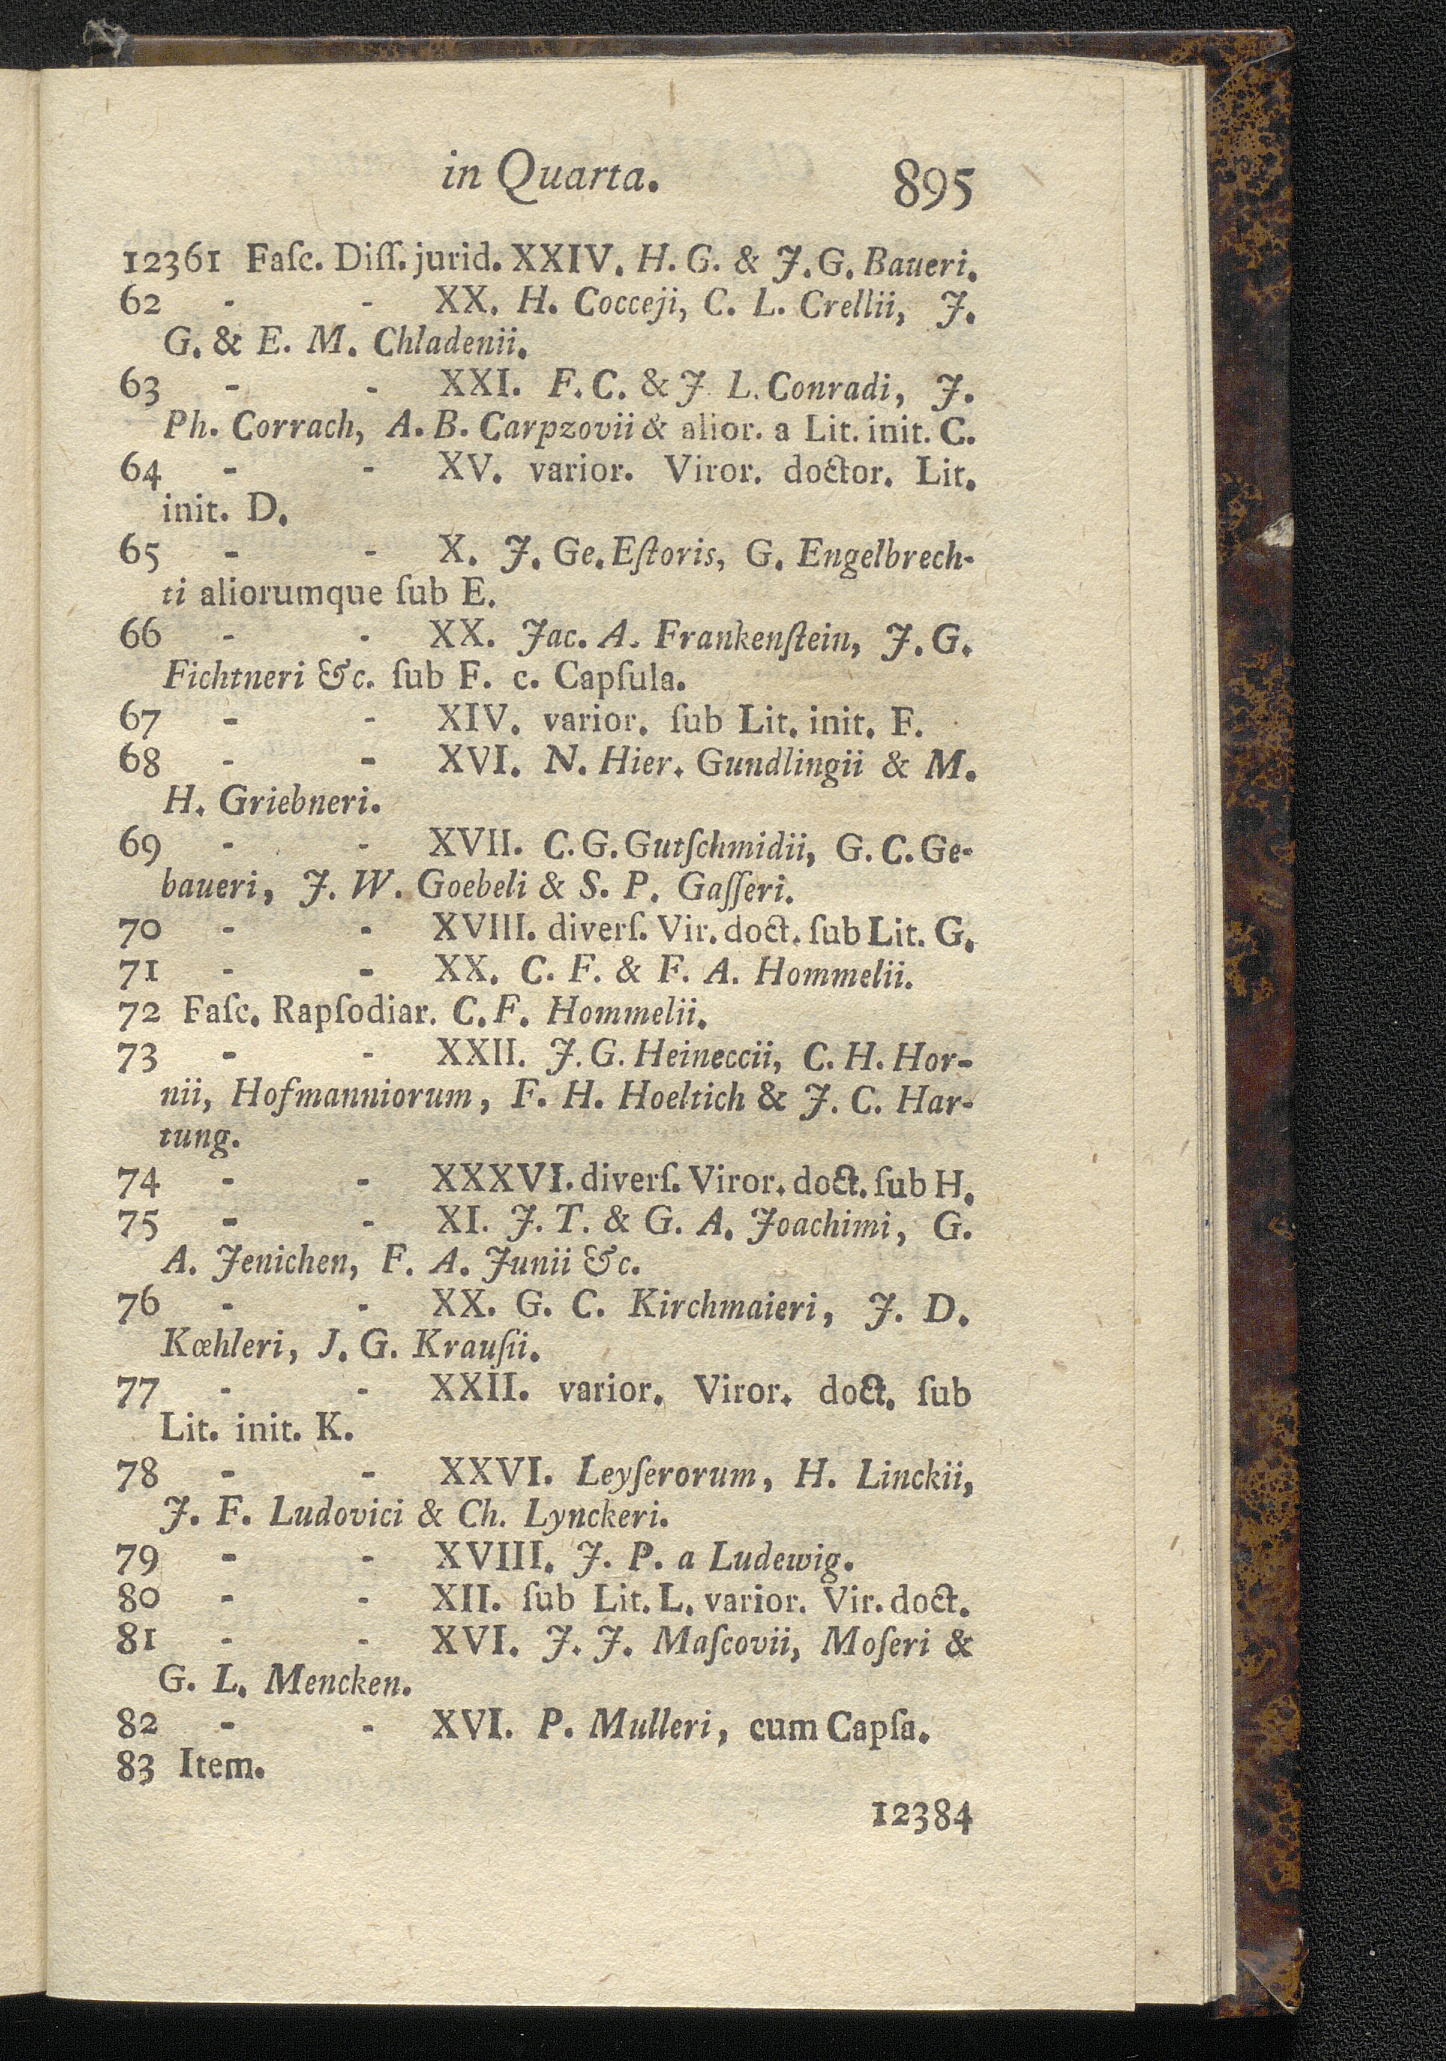 in Quarta. 895
12361 Faſc. Diſſ. jurid. XXIV. H. G. & J. G. Baueri.
62 - - XX. H. Cocceji, C. L. Crellii, J.
G. & E. M. Chladenii.
63 - - XXI. F. C. & J L. Conradi, J.
Ph. Corrach, A. B. Carpzovii & alior. a Lit. init. C.
64 - - XV. varior. Viror. doctor. Lit.
init. D.
65 - - X. J. Ge. Eſtoris, G. Engelbrech-
ti aliorumque ſub E.
66 - - XX. Jac. A. Frankenſtein, J. G.
Fichtneri &c. ſub F. c. Capſula.
67 - - XIV. varior. ſub Lit. init. F.
68 - - XVI. N. Hier. Gundlingii & M.
H. Griebneri.
69 - - XVII. C. G. Gutſchmidii, G. C. Ge-
baueri, J. W. Goebeli & S. P. Gaſſeri.
70 - - XVIII. diverſ. Vir. doct. ſub Lit. G.
71 - - XX. C. F. & F. A. Hommelii.
72 Faſc. Rapſodiar. C. F. Hommelii.
73 - - XXII. J. G. Heineccii, C. H. Hor-
nii, Hofmanniorum, F. H. Hoeltich & J. C. Har-
tung.
74 - - XXXVI. diverſ. Viror. doct. ſub H.
75 - - XI. J. T. & G. A. Joachimi, G.
A. Jenichen, F. A. Junii &c.
76 - - XX. G. C. Kirchmaieri, J. D.
Kœhleri, J. G. Krauſii.
77 - - XXII. varior. Viror. doct. ſub
Lit. init. K.
78 - - XXVI. Leyſerorum, H. Linckii,
J. F. Ludovici & Ch. Lynckeri.
79 - - XVIII. J. P. a Ludewig.
80 - - XII. ſub Lit. L. varior. Vir. doct.
81 - - XVI. J. J. Maſcovii, Moſeri &
G. L. Mencken.
82 - - XVI. P. Mulleri, cum Capſa.
83 Item.
12384